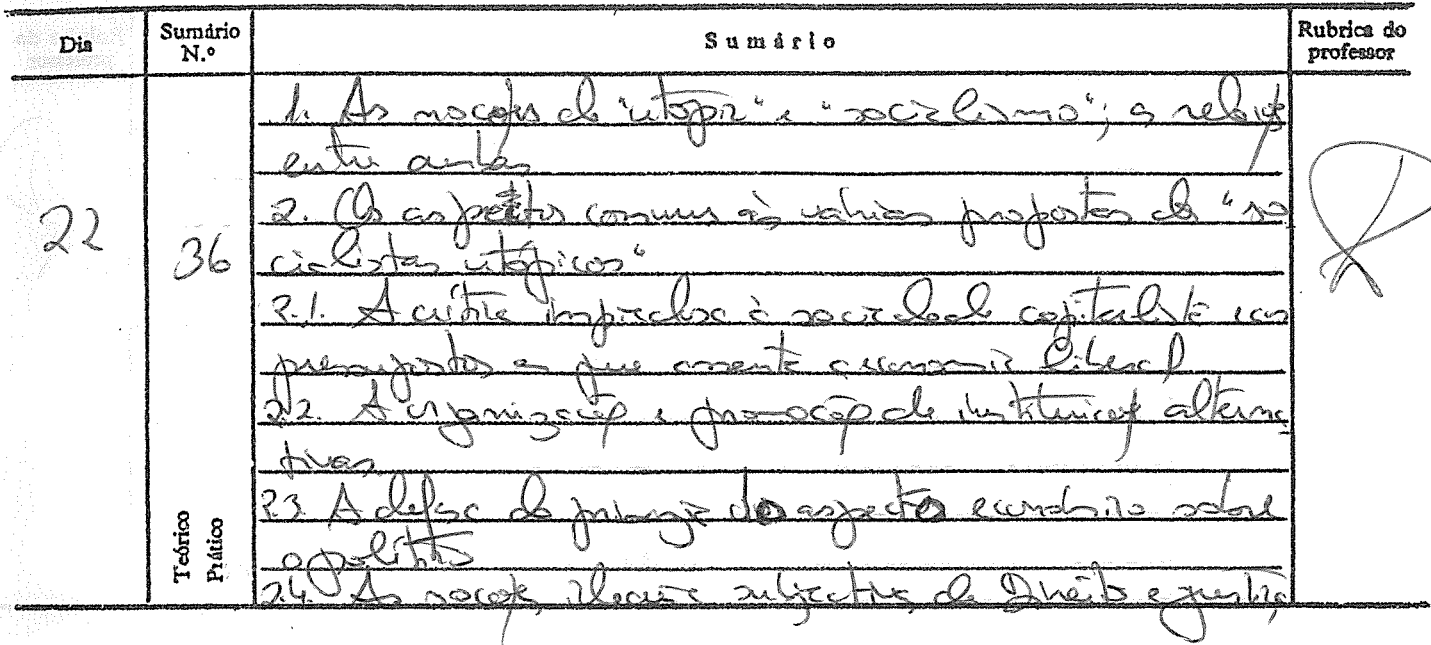 Dia
Sumário N.º
Sumário
Rubrica do professor
22
36
Teórico
Prático
1. As noções de "utopia" e "socialismo"; a relação
entre ambas
2. Os aspectos comuns às várias propostas de "so
cialistas utópicos"
2.1. A crítica impiedosa à sociedade capitalista e aos
pressupostos em que assenta a economia liberal
2.2. A organização e promoção de instituições alterna
tivas
2.3. A defesa da primazia do aspecto económico sobre
o político
2.4. As noções, idealista e subjectiva, de Direito e justiça